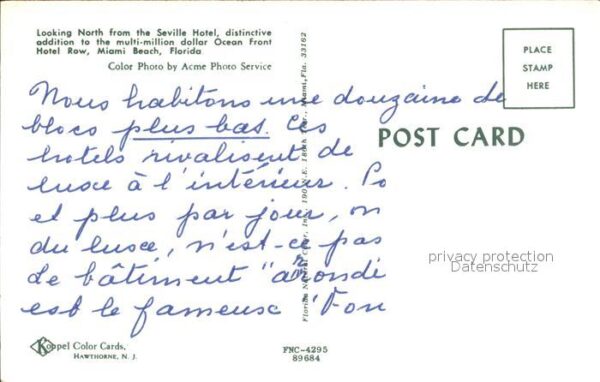 Looking North from the Seville Hotel, distinctive
addition to the multi-million dollar Ocean Front
Hotel Row, Miami Beach, Florida
Color Photo by Acme Photo Service
PLACE
STAMP
HERE
POST CARD
Nous habitons une douzaine de
blocs plus bas. Ces
hotels rivalisent de
luxe à l'intérieur. Po
et plus par jour, on
du luxe, n'est-ce pas
Le bâtiment "
est le fameux "Fon
Florida Natural Color, Inc., 190 N.E. 186th Ter., Miami, Fla. 33162
privacy protection
Datenschutz
Koppel Color Cards,
HAWTHORNE, N. J.
FNC-4295
89684